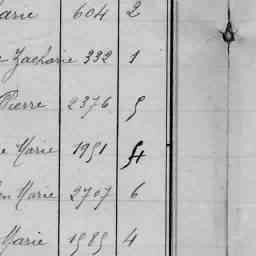 arie 604 2
Zacharie 332 1
Pierre 2376 5
e Marie 1951 4
en Marie 2707 6
Marie 1585 4